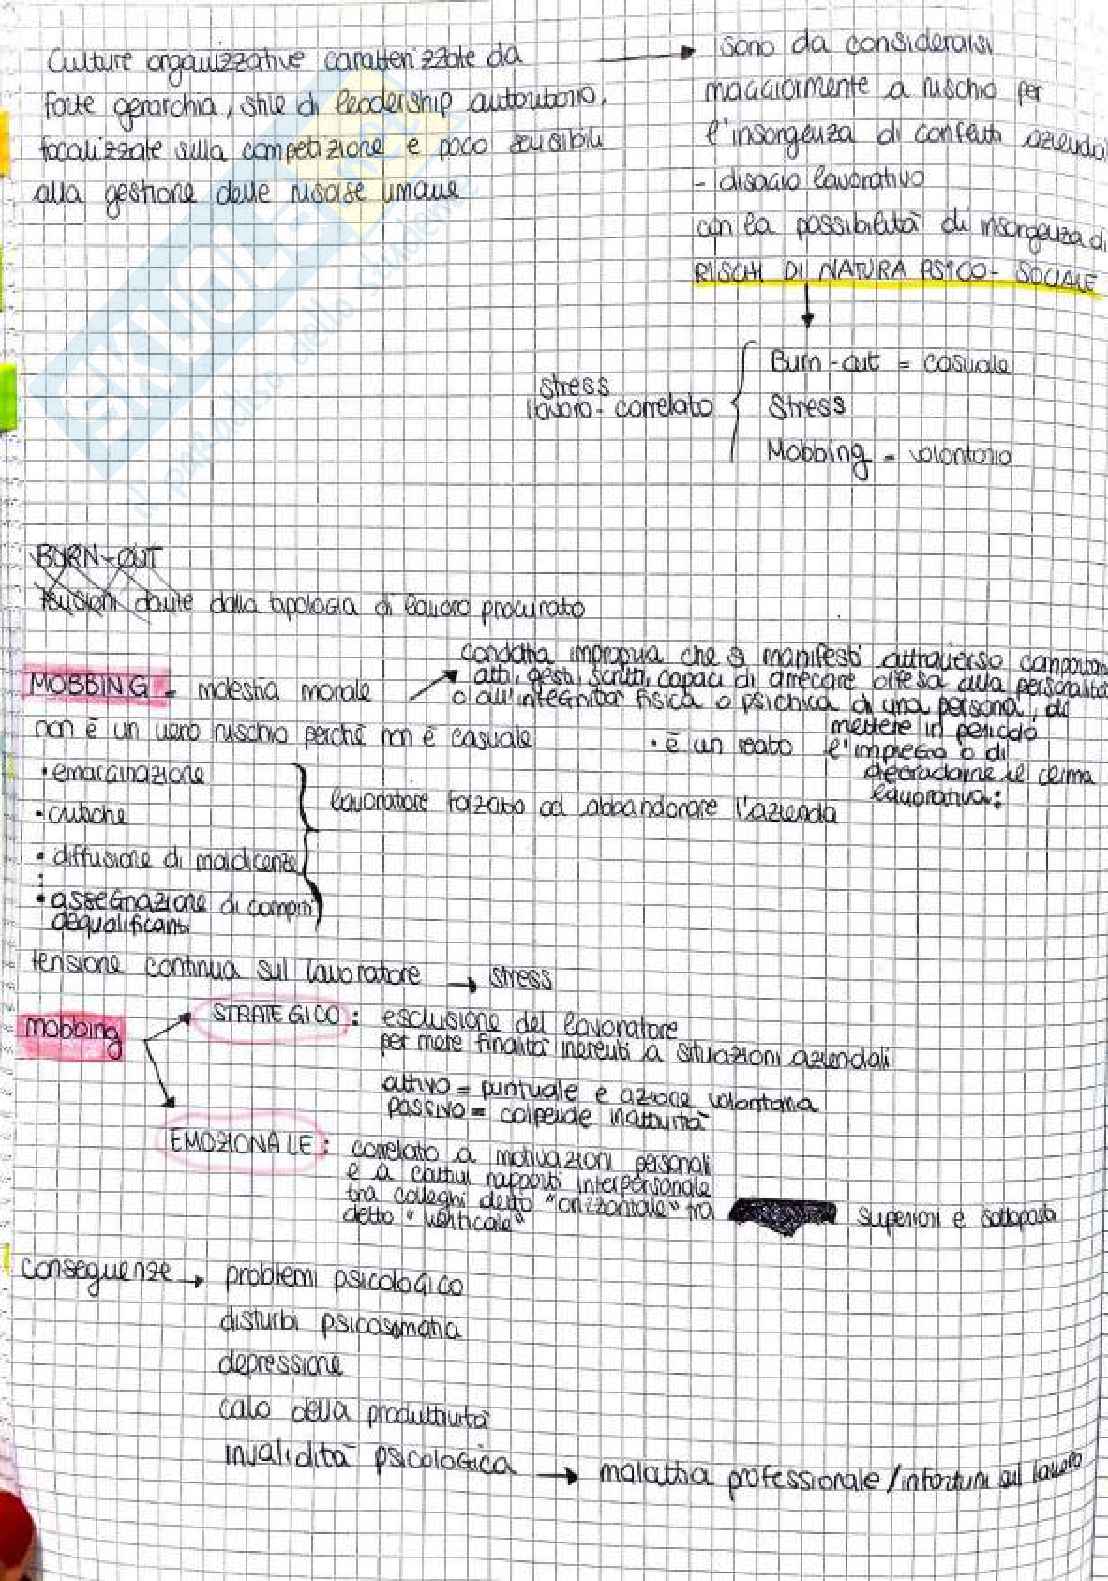 Culture organizzative caratterizzate da
forte gerarchia, stile di leadership autoritario,
focalizzate sulla competizione e poco sensibili
alla gestione delle risorse umane
sono da considerarsi
maggiormente a rischio per
l'insorgenza di conflitti aziendali
- disagio lavorativo
con la possibilità di insorgenza di
RISCHI DI NATURA PSICO-SOCIALE
stress
lavoro-correlato
Burn-out = casuale
Stress
Mobbing = volontario
BURN-OUT
Tensioni dovute dalla tipologia di lavoro procurato
MOBBING = molestia morale
condotta impropria che si manifesti attraverso comportam
atti, gesti, scritti, capaci di arrecare offesa alla personalità
o all'integrità fisica o psichica di una persona, di
mettere in pericolo
l'impiego o di
degradarne il clima
lavorativo:
non è un vero rischio perché non è casuale
• è un reato
• emarginazione
• critiche
• diffusione di maldicenze
• assegnazione di compiti
dequalificanti
lavoratore forzato ad abbandonare l'azienda
tensione continua sul lavoratore → stress
mobbing
STRATEGICO: esclusione del lavoratore
per mere finalità inerenti a situazioni aziendali
attivo = puntuale e azione volontaria
passivo = colpevole inattività
EMOZIONALE: correlato a motivazioni personali
e a cattivi rapporti interpersonale
tra colleghi detto "orizzontale" tra superiori e sottoposti
detto "verticale"
conseguenze → problemi psicologico
disturbi psicosomatici
depressione
calo della produttività
invalidità psicologica → malattia professionale/infortuni sul lavoro
SKUOLA.net
il paradiso dello studente